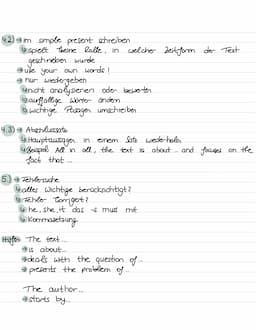 4.2) → im simple present schreiben
↳ spielt keine Rolle, in welcher Zeitform der Text
geschrieben wurde
→ use your own words!
→ nur wiedergeben
↳ nicht analysieren oder bewerten
↳ auffällige Wörter ändern
↳ wichtige Passagen umschreiben
4.3) → Abschlusssatz
↳ Hauptaussagen in einem Satz wiederholen
↳ Beispiel: All in all, the text is about... and focuses on the
fact that ...
5.) → Fehlersuche
↳ alles Wichtige berücksichtigt?
↳ Fehler korrigiert?
↳ he, she, it das -s muss mit
↳ Kommasetzung
Hilfen: The text...
→ is about...
→ deals with the question of...
→ presents the problem of...
The author...
→ starts by...